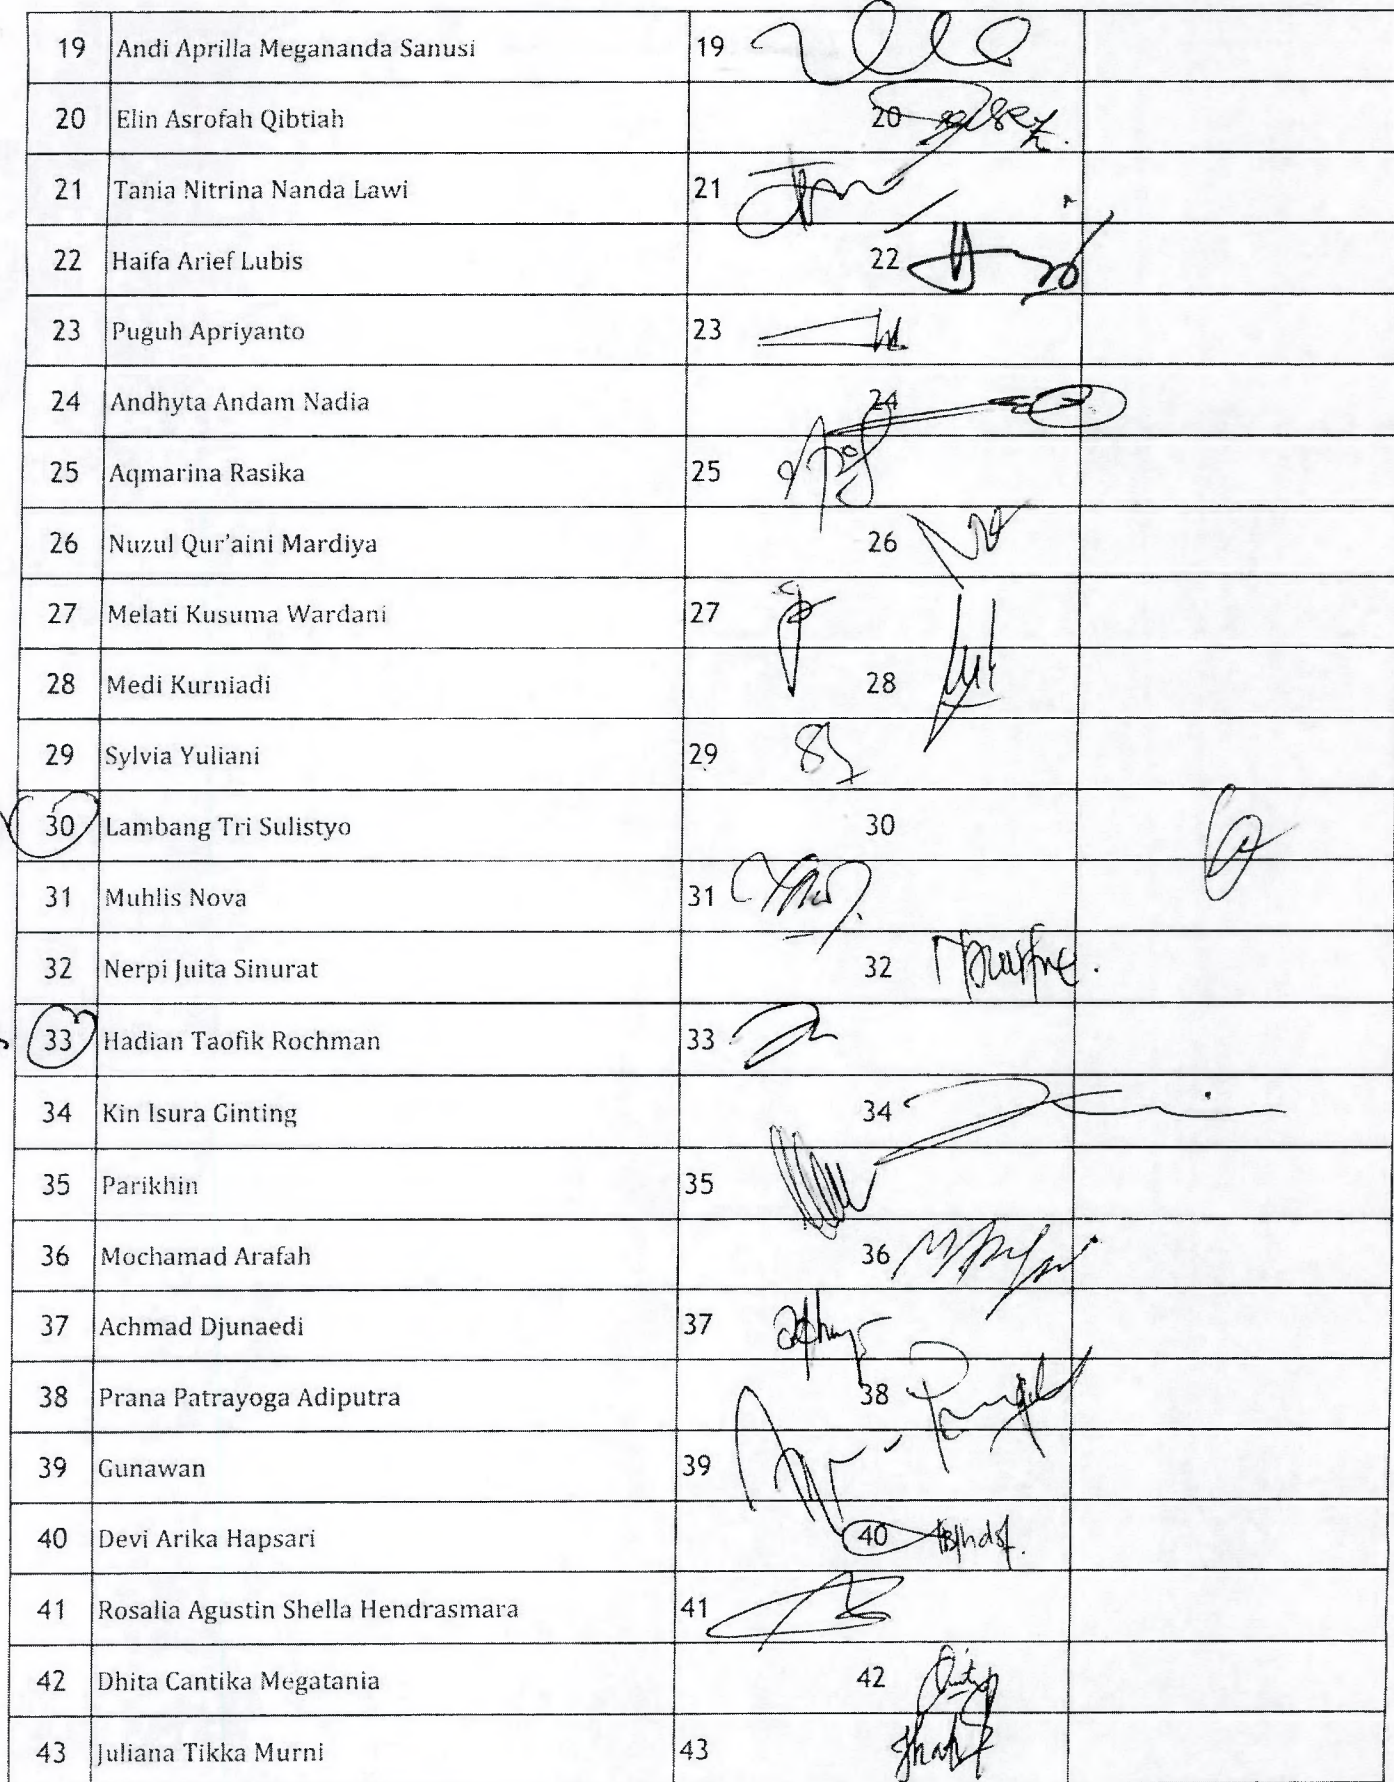 19 Andi Aprilla Megananda Sanusi 19
20 Elin Asrofah Qibtiah 20
21 Tania Nitrina Nanda Lawi 21
22 Haifa Arief Lubis 22
23 Puguh Apriyanto 23
24 Andhyta Andam Nadia 24
25 Aqmarina Rasika 25
26 Nuzul Qur'aini Mardiya 26
27 Melati Kusuma Wardani 27
28 Medi Kurniadi 28
29 Sylvia Yuliani 29
30 Lambang Tri Sulistyo 30
31 Muhlis Nova 31
32 Nerpi Juita Sinurat 32
33 Hadian Taofik Rochman 33
34 Kin Isura Ginting 34
35 Parikhin 35
36 Mochamad Arafah 36
37 Achmad Djunaedi 37
38 Prana Patrayoga Adiputra 38
39 Gunawan 39
40 Devi Arika Hapsari 40
41 Rosalia Agustin Shella Hendrasmara 41
42 Dhita Cantika Megatania 42
43 Juliana Tikka Murni 43